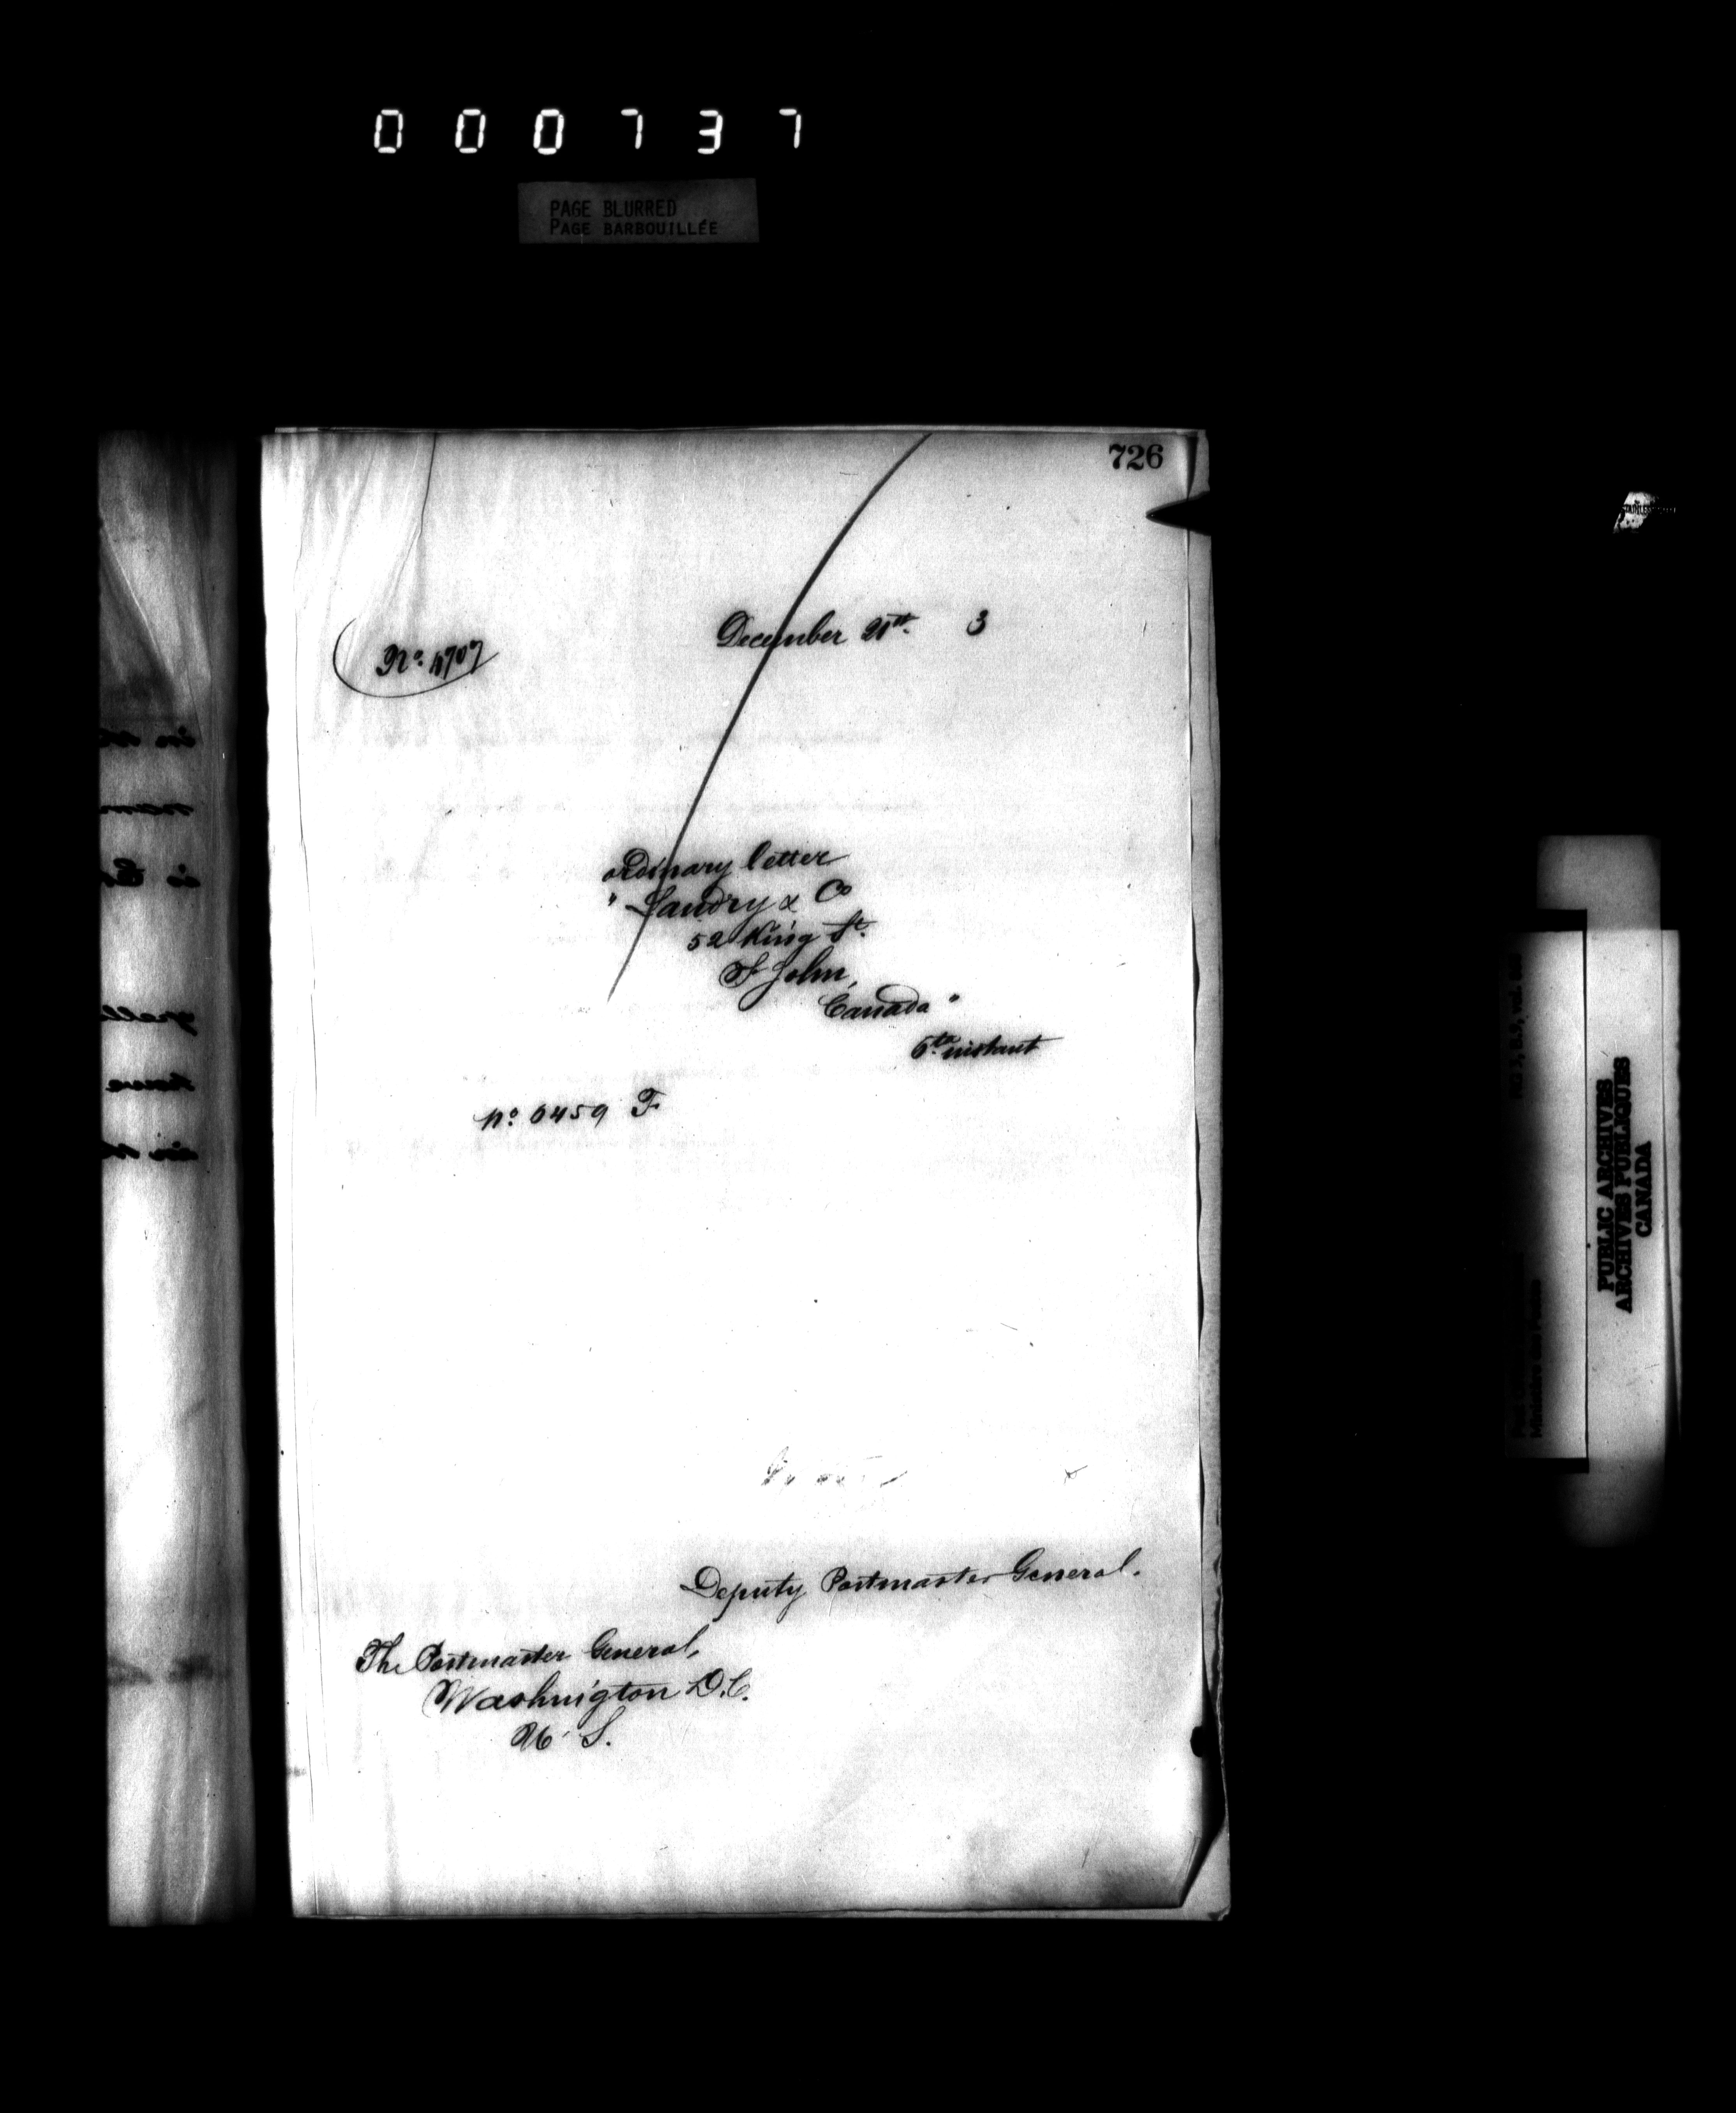 000737
PAGE BLURRED
PAGE BARBOUILLÉE
726
December 21st. 3
No. 4707
ordinary letter
" Landry & Co
52 King St.
St John,
Canada "
6th instant
No. 6459 F
Deputy Postmaster General.
The Postmaster General,
Washington D.C.
U. S.
PUBLIC ARCHIVES
ARCHIVES PUBLIQUES
CANADA